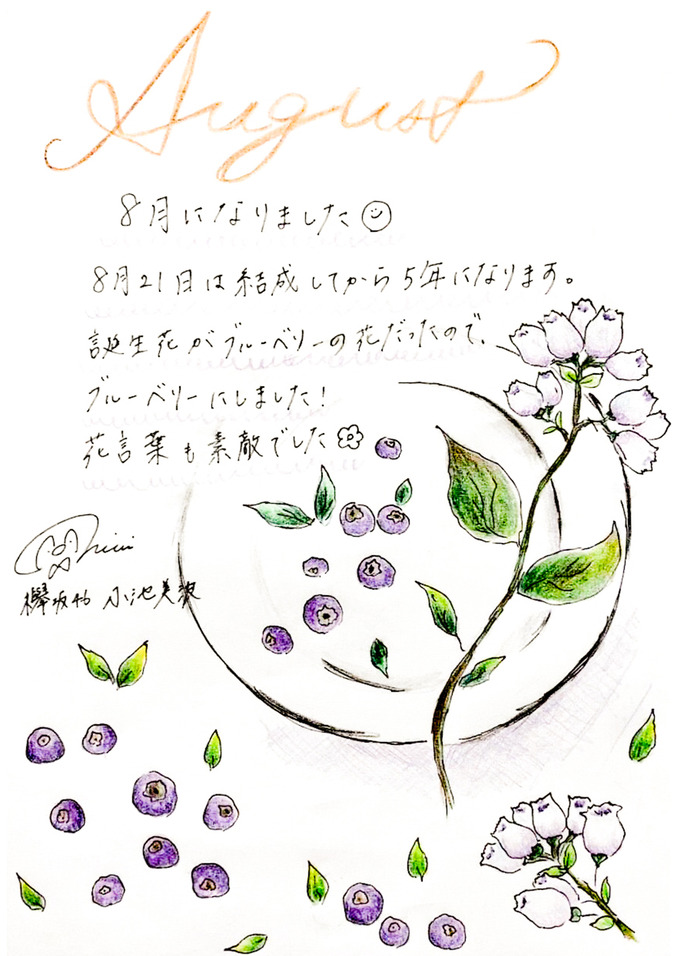 August
8月になりました
8月21日は結成してから5年になります。
誕生花がブルーベリーの花だったので、
ブルーベリーにしました!
花言葉も素敵でした
欅坂46 小池美波